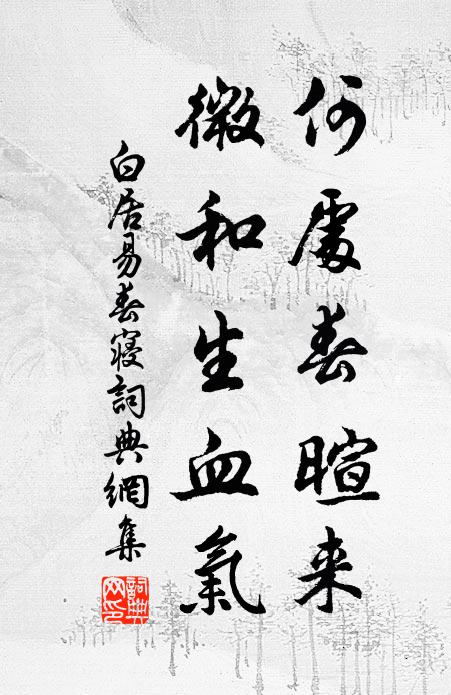 何處春暄来
微和生血氣
白居易春寝詞典網集
詞典网印